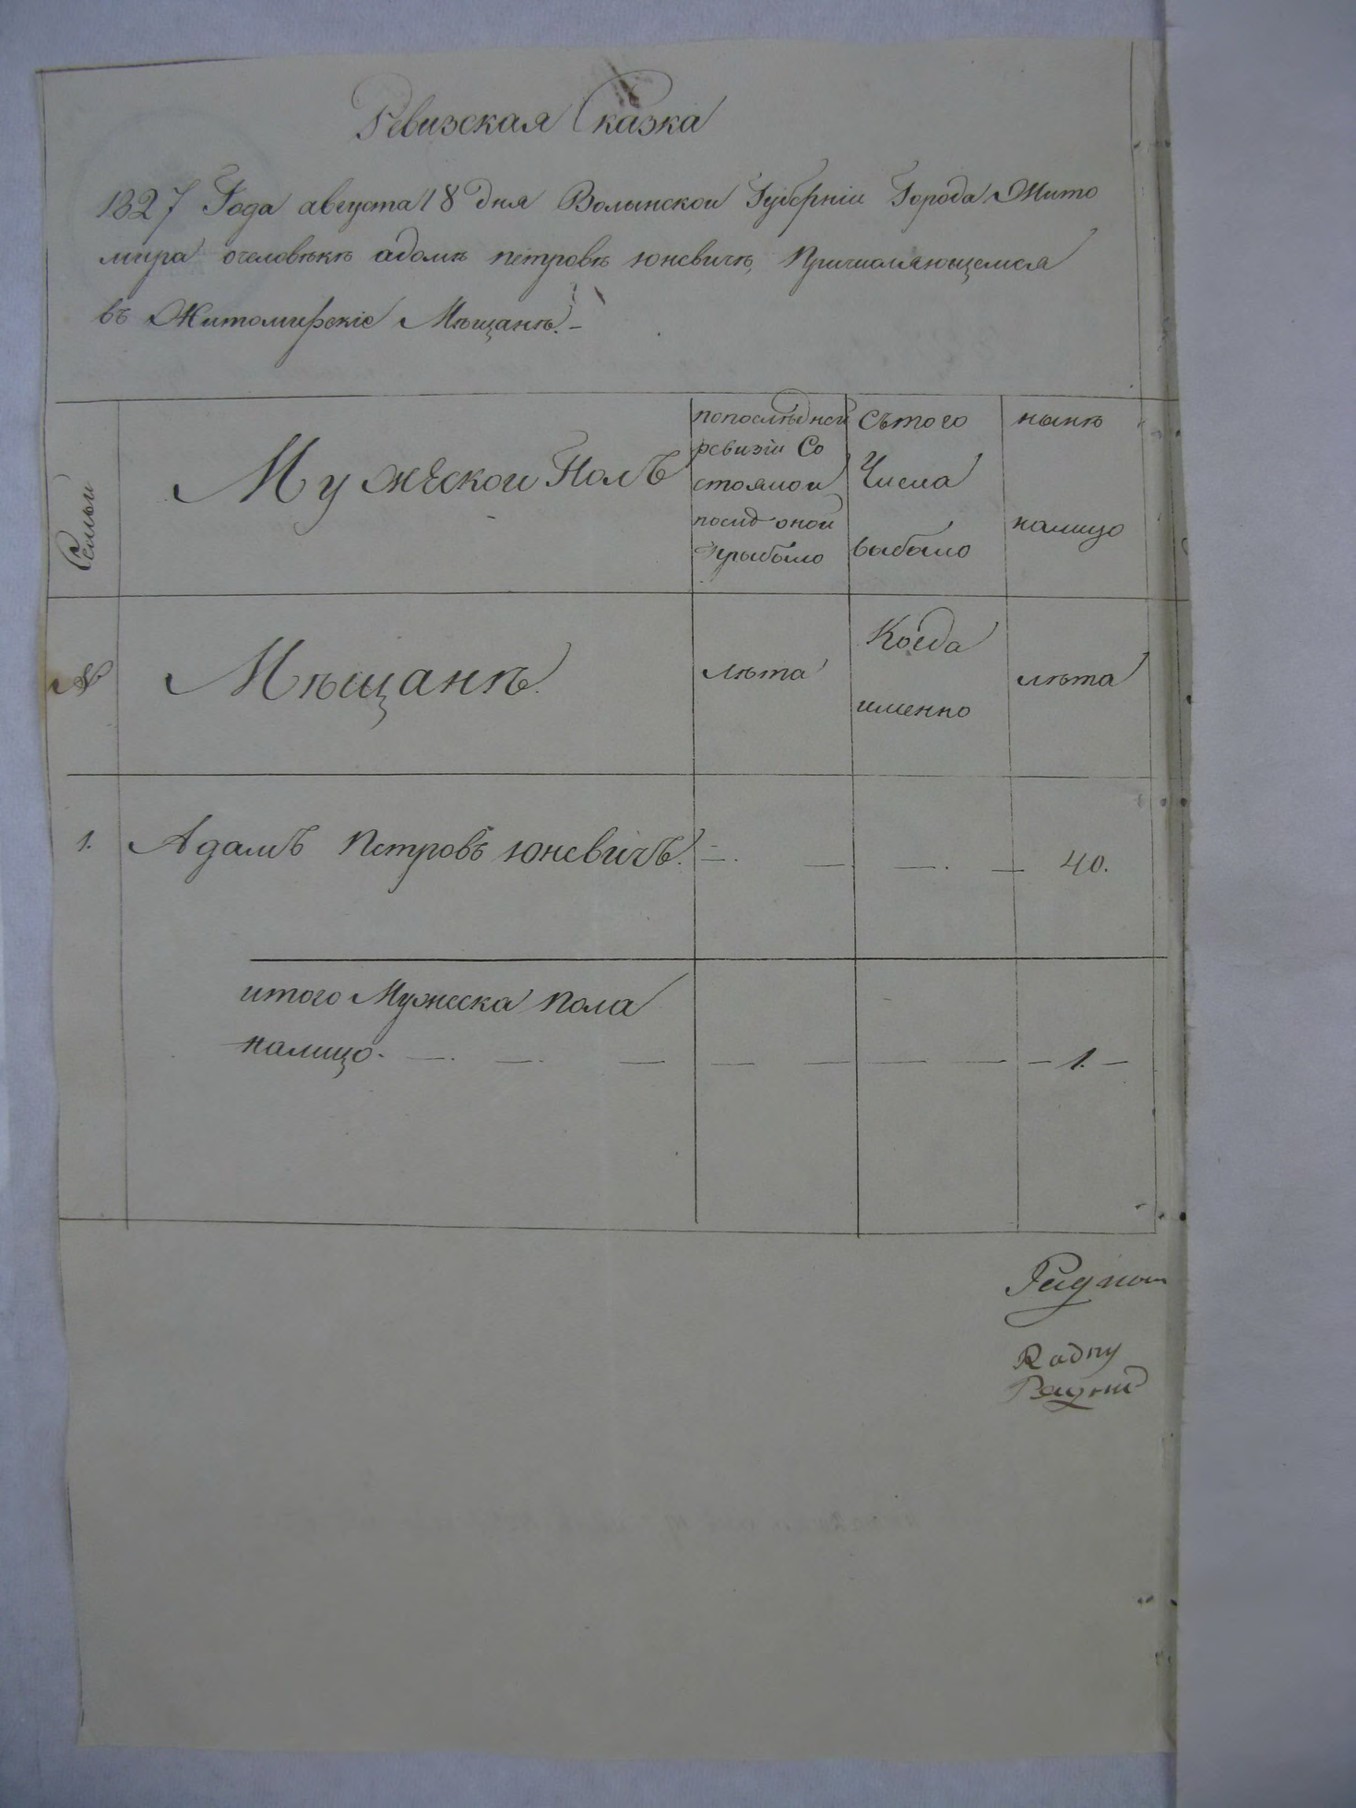 Ревизская Сказка
1827 Года августа 18 дня Волынской Губерніи Города Жито
мира очеловѣкѣ адамѣ петровѣ юневичѣ, Причисляющемся
въ Житомирскіе Мѣщанѣ.
Семьи
Мужескои Полъ
попослѣдней
ревизіи Со
стояло и
послѣ оной
прибыло
Сътого
Числа
выбыло
нынѣ
налицо
№
Мѣщанѣ.
лѣта
Когда
именно
лѣта
1. Адамъ Петровъ юневичъ. — — — — 40.
итого Мужеска пола
налицо. — — — — — — — 1. —